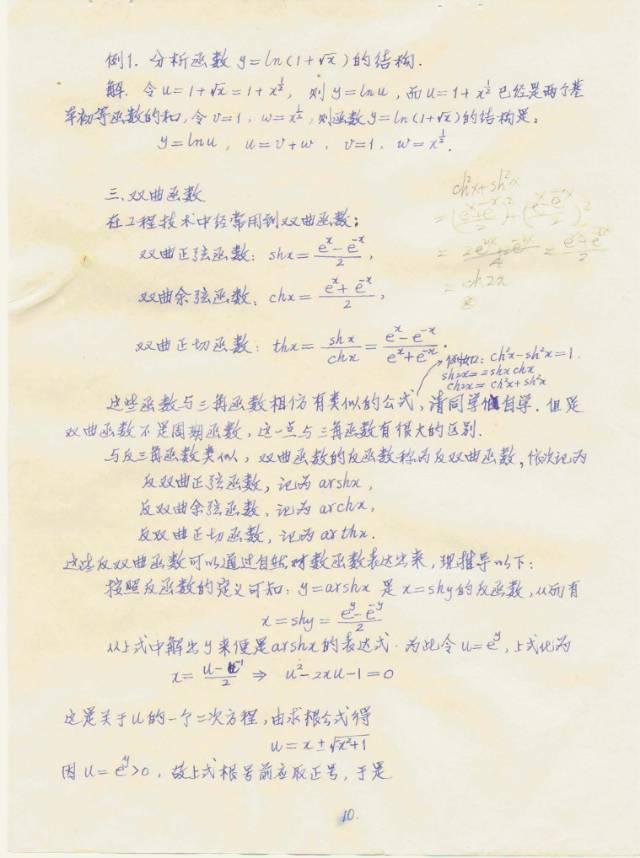 例1. 分析函数 y=ln(1+√x) 的结构.
解. 令 u=1+√x=1+x^{1/2}, 则 y=lnu, 而 u=1+x^{1/2} 已经是两个基
本初等函数的和, 令 v=1, w=x^{1/2}, 则函数 y=ln(1+√x) 的结构是:
y=lnu, u=v+w, v=1, w=x^{1/2}.
三. 双曲函数
在工程技术中经常用到双曲函数;
双曲正弦函数: shx=(e^x-e^{-x})/2,
双曲余弦函数: chx=(e^x+e^{-x})/2,
双曲正切函数: thx=shx/chx=(e^x-e^{-x})/(e^x+e^{-x}).
ch²x+sh²x
=((e^x+e^{-x})/2)²+((e^x-e^{-x})/2)²
=ch2x
例如: ch²x-sh²x=1.
sh2x=2shxchx
ch2x=ch²x+sh²x
这些函数与三角函数相仿有类似的公式, 请同学自学. 但是
双曲函数不是周期函数, 这一点与三角函数有很大的区别.
与反三角函数类似, 双曲函数的反函数称为反双曲函数, 依次记为
反双曲正弦函数, 记为 arshx,
反双曲余弦函数, 记为 archx,
反双曲正切函数, 记为 arthx.
这些反双曲函数可以通过自然对数函数表达出来, 现推导以下:
按照反函数的定义可知: y=arshx 是 x=shy 的反函数, 从而有
x=shy=(e^y-e^{-y})/2
从上式中解出 y 来便是 arshx 的表达式. 为此令 u=e^y, 上式化为
x=(u-u^{-1})/2 ⇒ u²-2xu-1=0
这是关于 u 的一个二次方程, 由求根公式得
u=x±√(x²+1)
因 u=e^y>0, 故上式根号前应取正号, 于是
10.